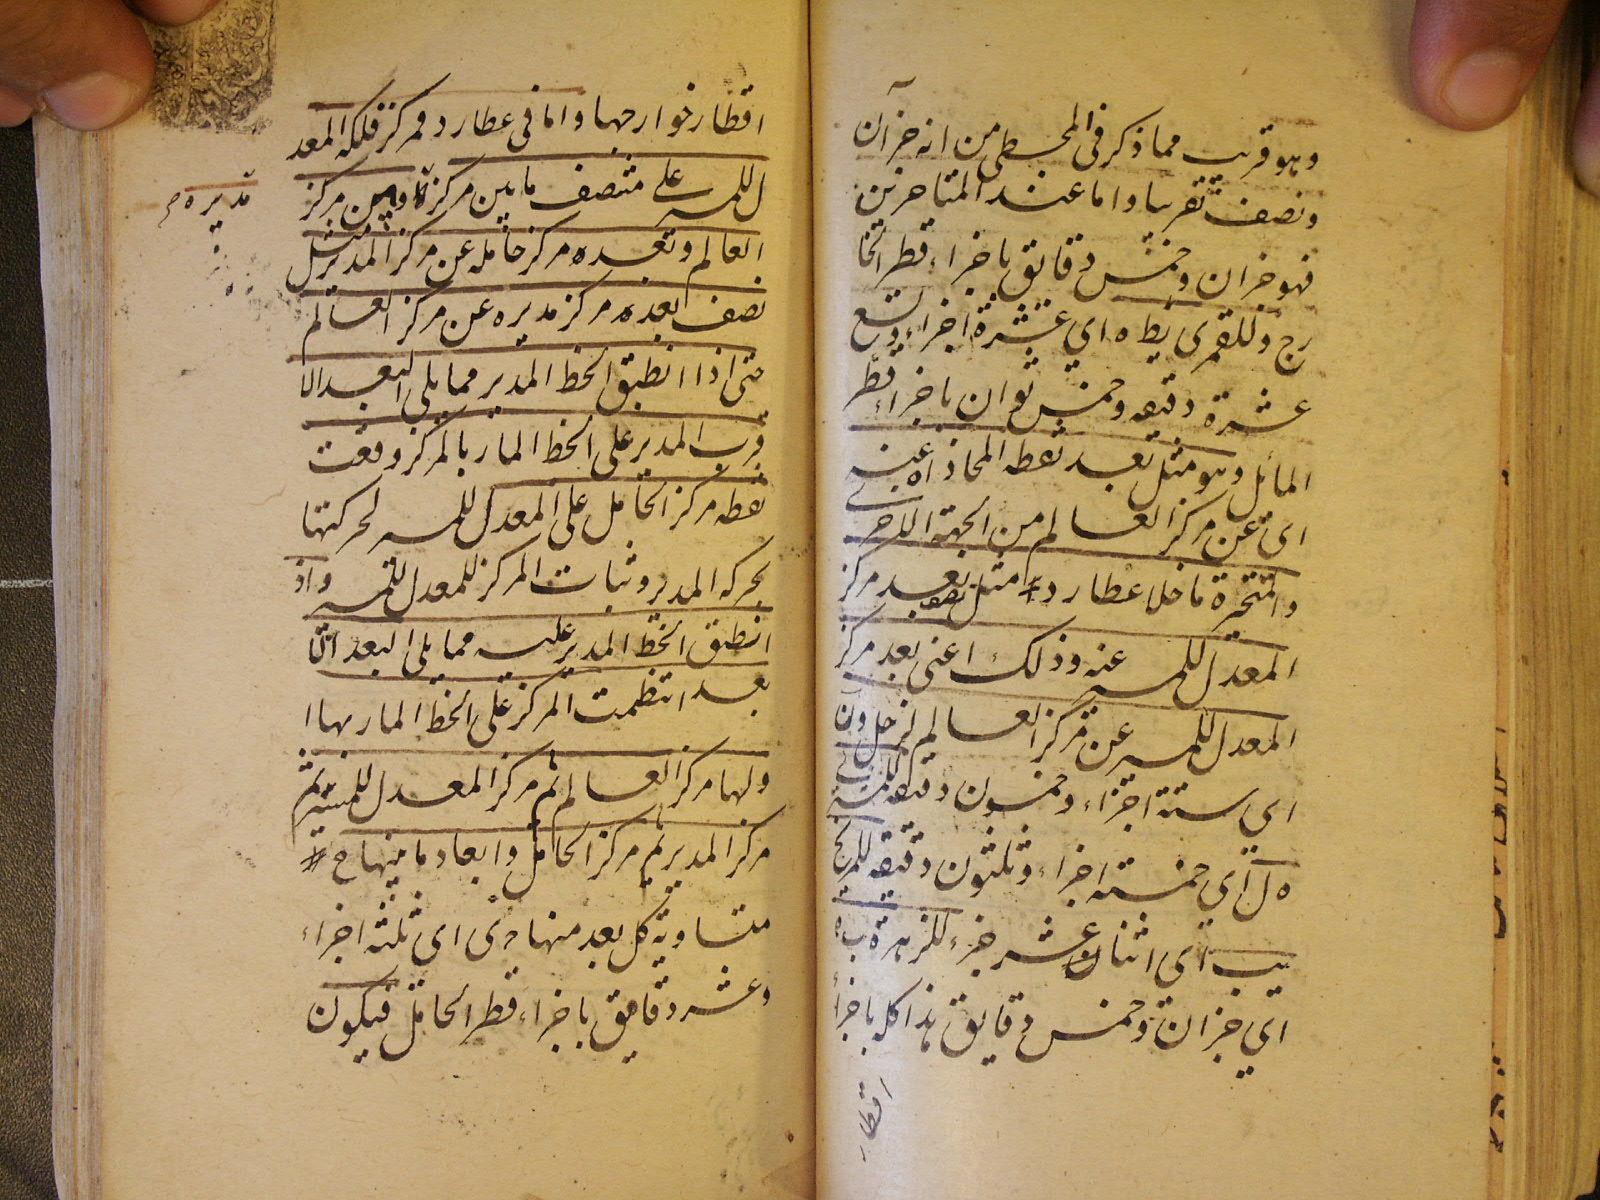 وهو قريب مما ذكر فى المجسطى من انه جزآن
ونصف تقريبا واما عند المتاخرين
فهو جزان وخمس دقايق باجزاء قطر الخا
رج وللقمر ى يط ه اي عشرة اجزاء وتسع
عشرة دقيقه وخمس ثوان باجزاء قطر
المائل وهو مثل بعد نقطه المحاذاه عنه
اى عن مركز العالم من الجهة الاخرى
والمتحيرة ما خلا عطارد مثل نصف بعد مركز
المعدل للمسير عنه وذلك اعنى بعد مركز
المعدل للمسير عن مركز العالم لزحل ون
اي ستة اجزاء وخمسون دقيقه للمشترى
ه ل اي خمسته اجزاء وثلثون دقيقه للمريخ
يب اى اثنان عشر جزء للزهرة ب ه
اي جزان وخمس دقايق هذا كله باجزاء
اقطار
اقطار خوارجها واما فى عطارد فمركز فلكه المعد
ل للمسير على منتصف مابين مركز وبين مركز
مديره
العالم وبعده مركز حامله عن مركز المدير مثل
نصف بعده مركز مديره عن مركز العالم
حتى اذا انطبق الخط المدير مما يلى البعد الا
قرب المدير على الخط المار بالمركز وقعت
نقطه مركز الحامل على المعدل للمسير لحركتها
بحركه المدير وثبات المركز للمعدل للمسير واذ
انطبق الخط المدير عليه مما يلى البعد الا
بعد انتظمت المركز على الخط المار بها ا
ولها مركز العالم ثم مركز المعدل للمسير ثم
مركز المدير ثم مركز الحامل وابعاد ما بينها ح
متساوية كل بعد منها ج ى اى ثلثه اجزاء
وعشر دقايق باجزاء قطر الحامل فيكون